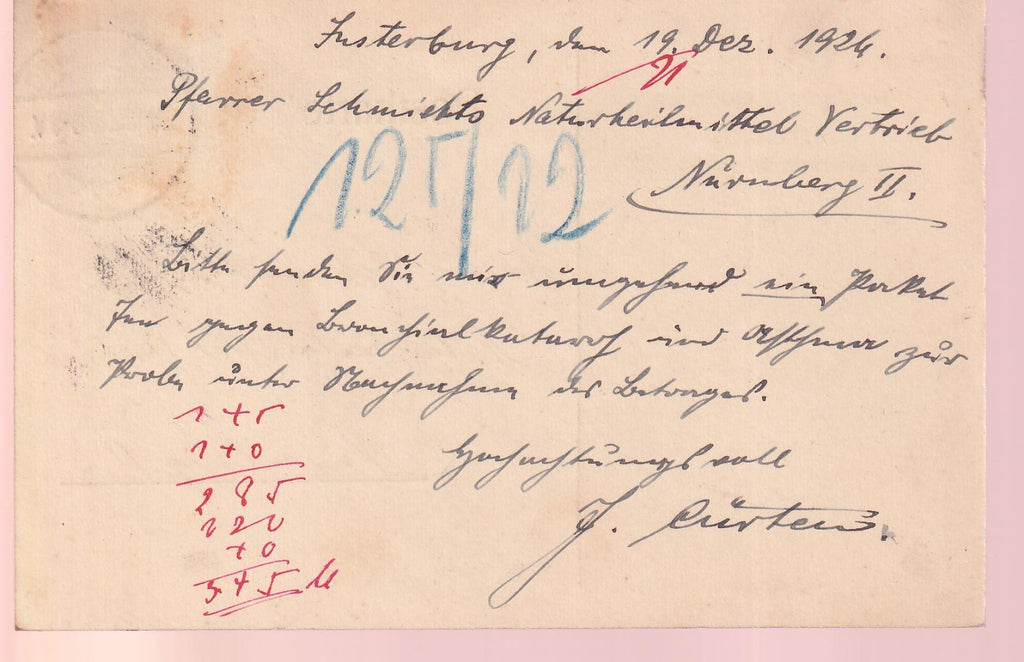 Insterburg, den 19. Dez. 1926.
21
Pfarrer Schmidts Naturheilmittel Vertrieb
Nürnberg II.
Bitte senden Sie mir umgehend ein Paket
Tee gegen Bronchialkatarrh und Asthma zur
Probe unter Nachnahme des Betrages.
Hochachtungsvoll
J. Cürten.
285